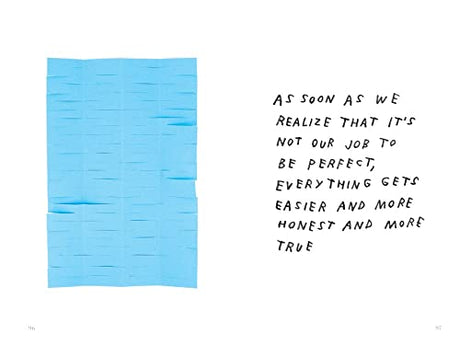 AS SOON AS WE
REALIZE THAT IT'S
NOT OUR JOB TO
BE PERFECT,
EVERYTHING GETS
EASIER AND MORE
HONEST AND MORE
TRUE